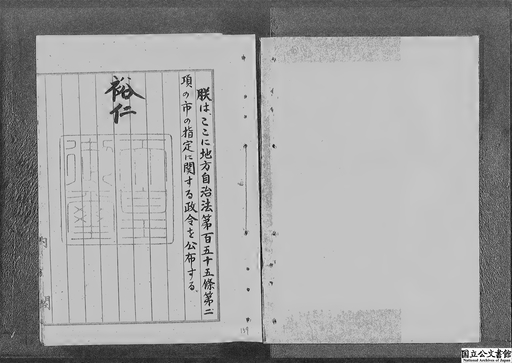 朕は、ここに地方自治法第百五十五條第二
項の市の指定に関する政令を公布する。
裕仁
天皇
御璽
国立公文書館
National Archives of Japan